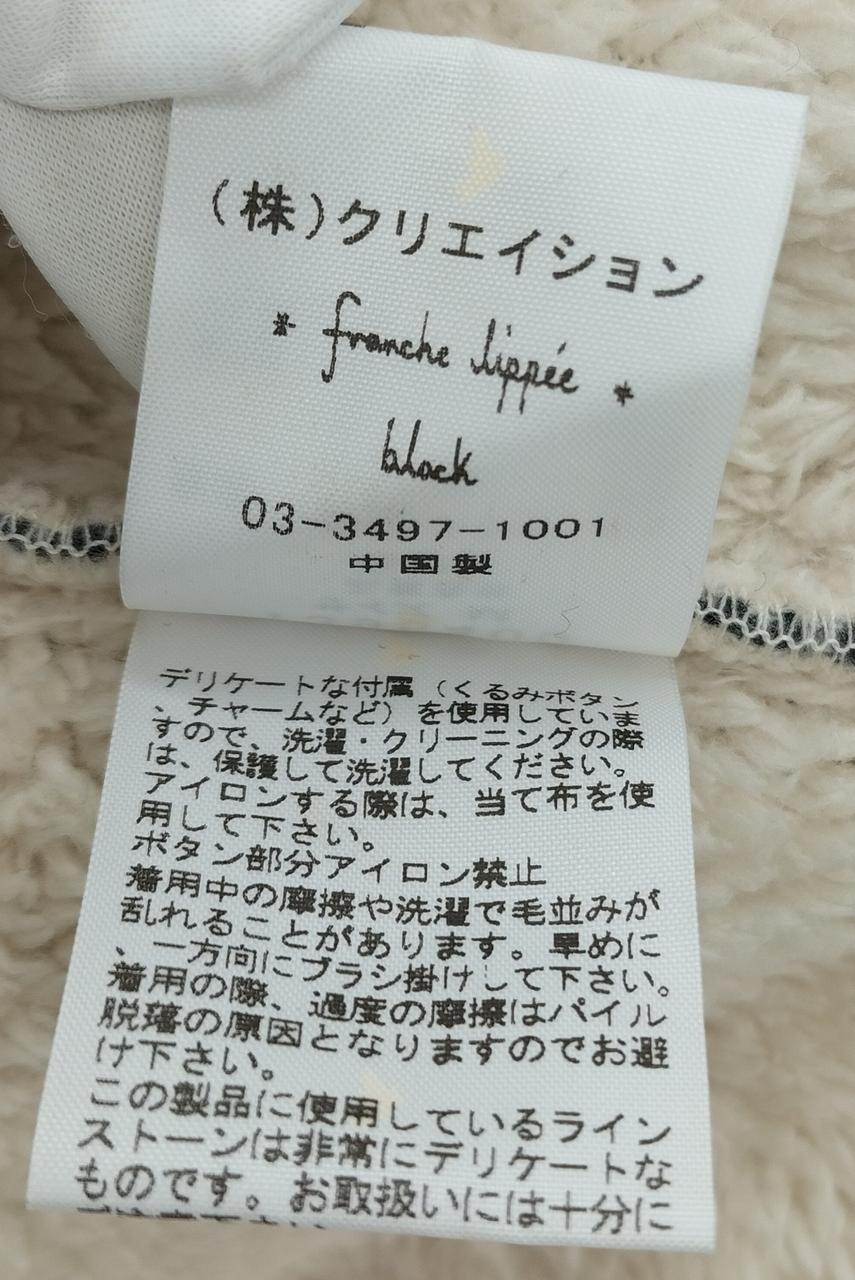 (株)クリエイション
* franche lippée *
block
03-3497-1001
中国製
デリケートな付属（くるみボタン
、チャームなど）を使用していま
すので、洗濯・クリーニングの際
は、保護して洗濯してください。
アイロンする際は、当て布を使
用して下さい。
ボタン部分アイロン禁止
着用中の摩擦や洗濯で毛並みが
乱れることがあります。早めに
、一方向にブラシ掛けして下さい。
着用の際、過度の摩擦はパイル
脱落の原因となりますのでお避
け下さい。
この製品に使用しているライン
ストーンは非常にデリケートな
ものです。お取扱いには十分に